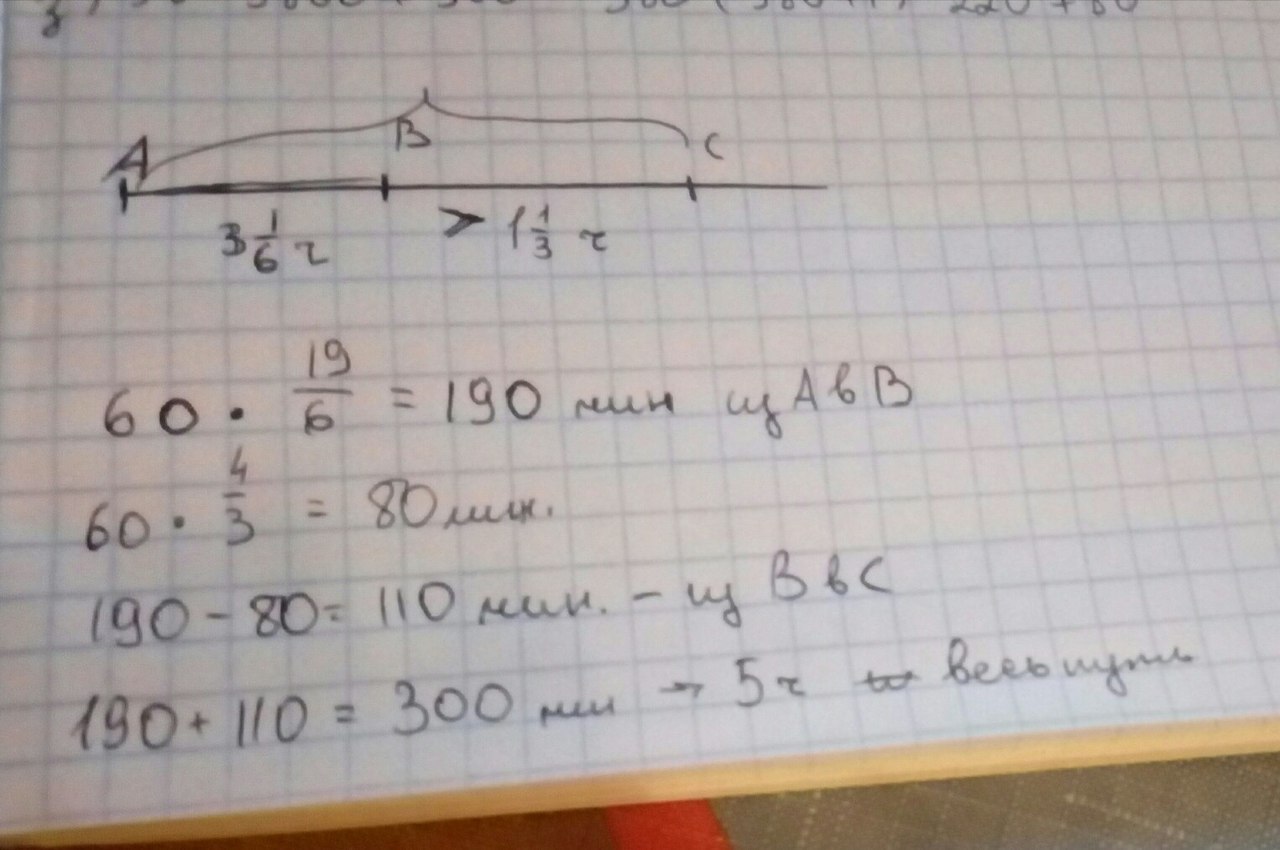 A B C
3 1/6 ч > 1 1/3 ч
60 · 19/6 = 190 мин из A в B
60 · 4/3 = 80 мин.
190 - 80 = 110 мин. - из B в C
190 + 110 = 300 мин → 5 ч весь путь